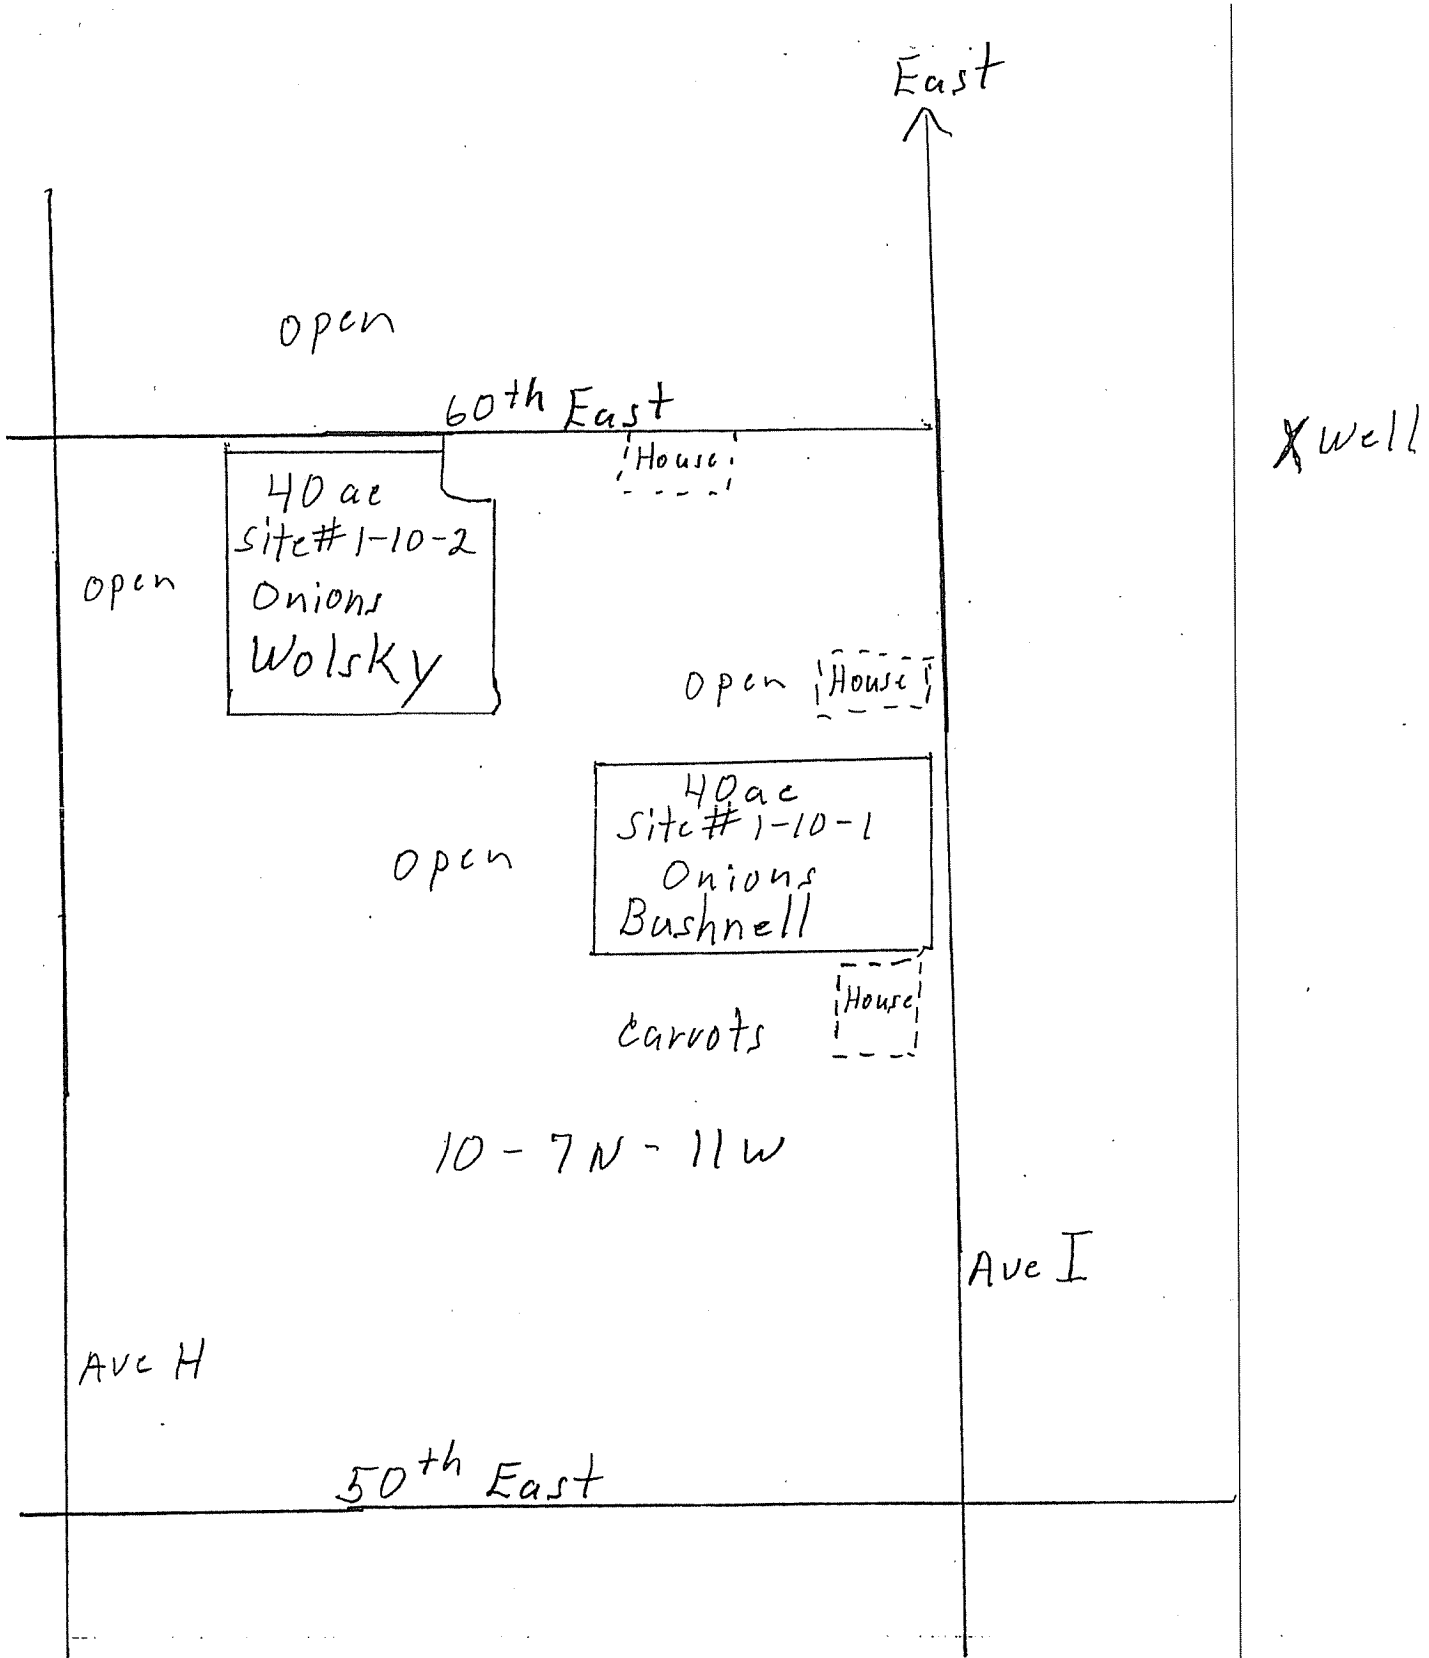 East
open
60th East
House
X Well
40 ac
Site# 1-10-2
Onions
Wolsky
open
open
House
40ac
Site# 1-10-1
Onions
Bushnell
open
House
Carrots
10-7N-11W
Ave I
Ave H
50th East